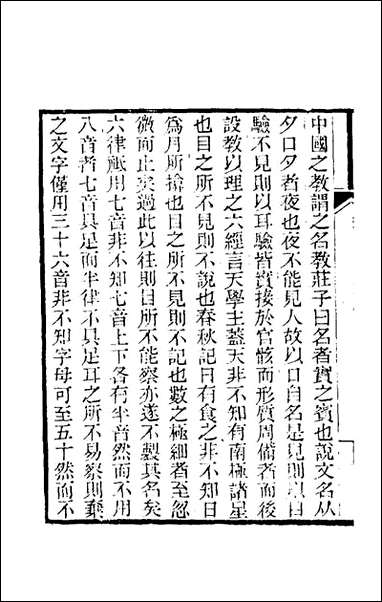 中國之教謂之名教莊子曰名者實之賓也說文名从
夕口夕者夜也夜不能見人故以口自名是見則以目
驗不見則以耳驗皆實接於官骸而形質周備者而後
設教以理之六經言天學主蓋天非不知有南極諸星
也目之所不見則不說也春秋記日有食之非不知日
為月所揜也目之所不見則不記也數之極細者至忽
微而止矣過此以往則目所不能察亦遂不製其名矣
六律祗用七音非不知七音上下各有半音然而不用
八音者七音具足而半律不具足耳之所不易察則棄
之文字僅用三十六音非不知字母可至五十然而不